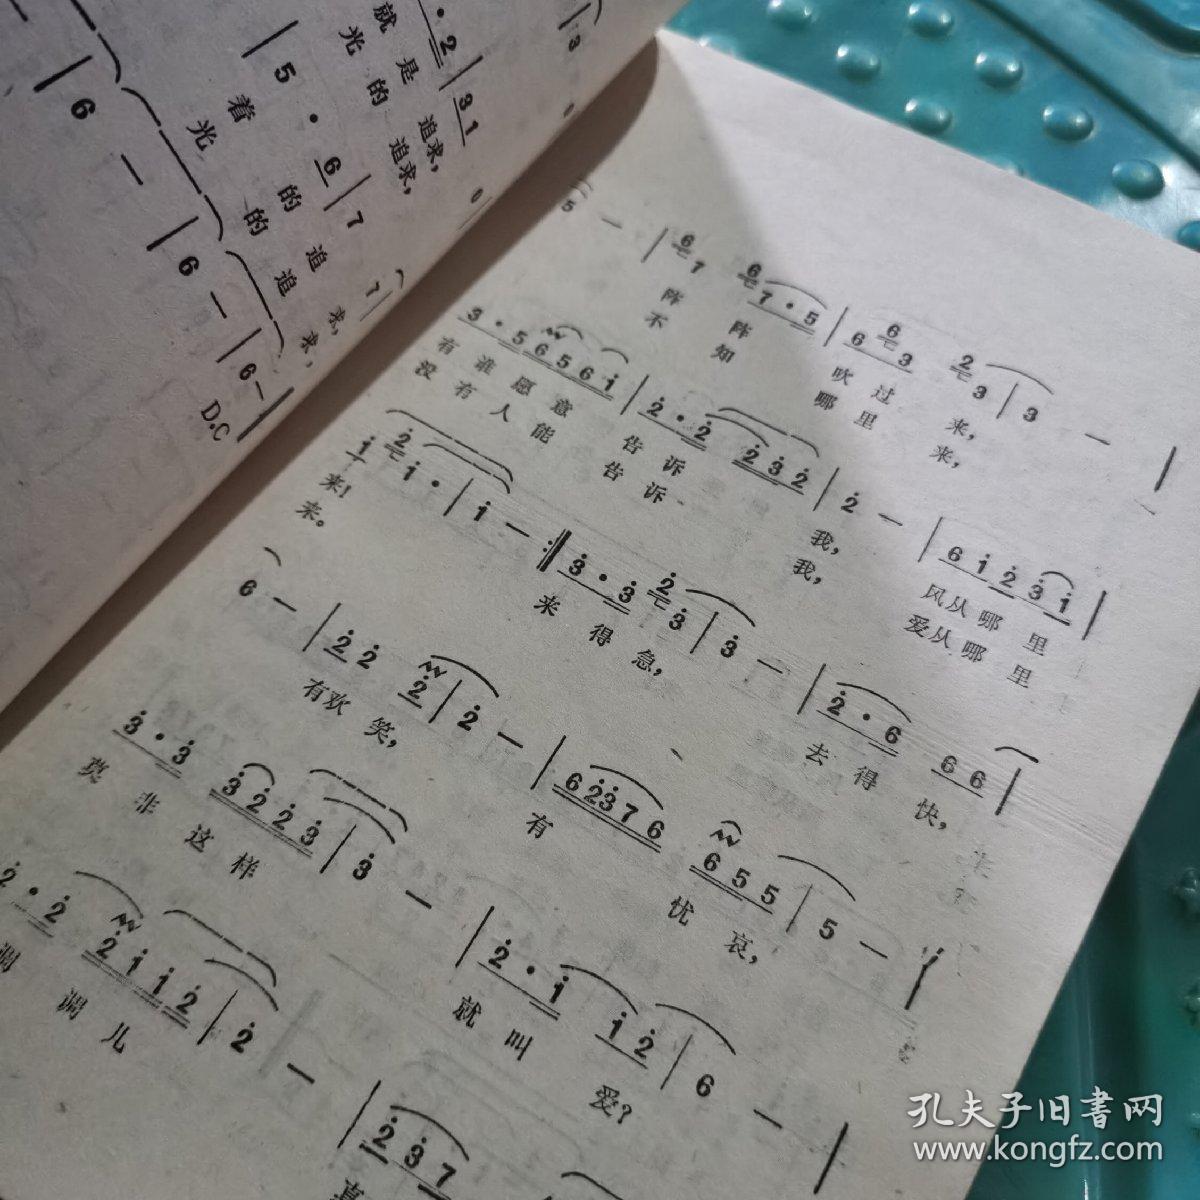 · 2 | 3 1
就 是 追求，
光 的 追求，
| 5 · 6 | 7
着 的 追 求，
光 的 追 求，
| 6 — | 6 — | 6 —
D.C
5 — | 7 7 · 5 | 6 3 3 | 3 — |
阵 阵 吹 过 来，
不 知 哪 里 来，
3 · 5 6 5 6 i | 2 · 2 2 3 2 | 2 — | 6 i 2 3 i |
有 谁 愿 意 告 诉 我， 风从 哪 里
没 有 人 能 告 诉 我， 爱从 哪 里
i i · | i — :‖ 3 · 3 3 | 3 — | 2 · 6 6 6 |
来！ 来 得 急， 去 得 快，
来。
6 — | 2 2 2 | 2 — | 6 2 3 7 6 6 5 5 | 5 — |
有欢 笑， 有 忧 哀，
3 · 3 3 2 2 3 | 3 — | 2 · i i 2 | 6 — |
莫 非 这 样 就 叫 爱？
2 · 2 2 i i 2 | 2 — | 2 3 7
调 调 儿
孔夫子旧書网
www.kongfz.com